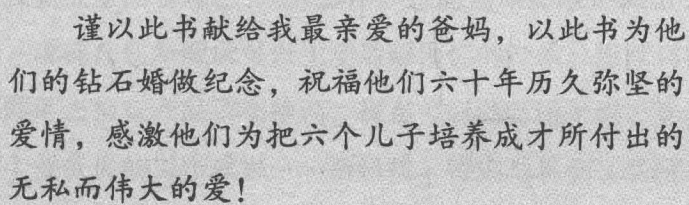 谨以此书献给我最亲爱的爸妈，以此书为他
们的钻石婚做纪念，祝福他们六十年历久弥坚的
爱情，感激他们为把六个儿子培养成才所付出的
无私而伟大的爱！